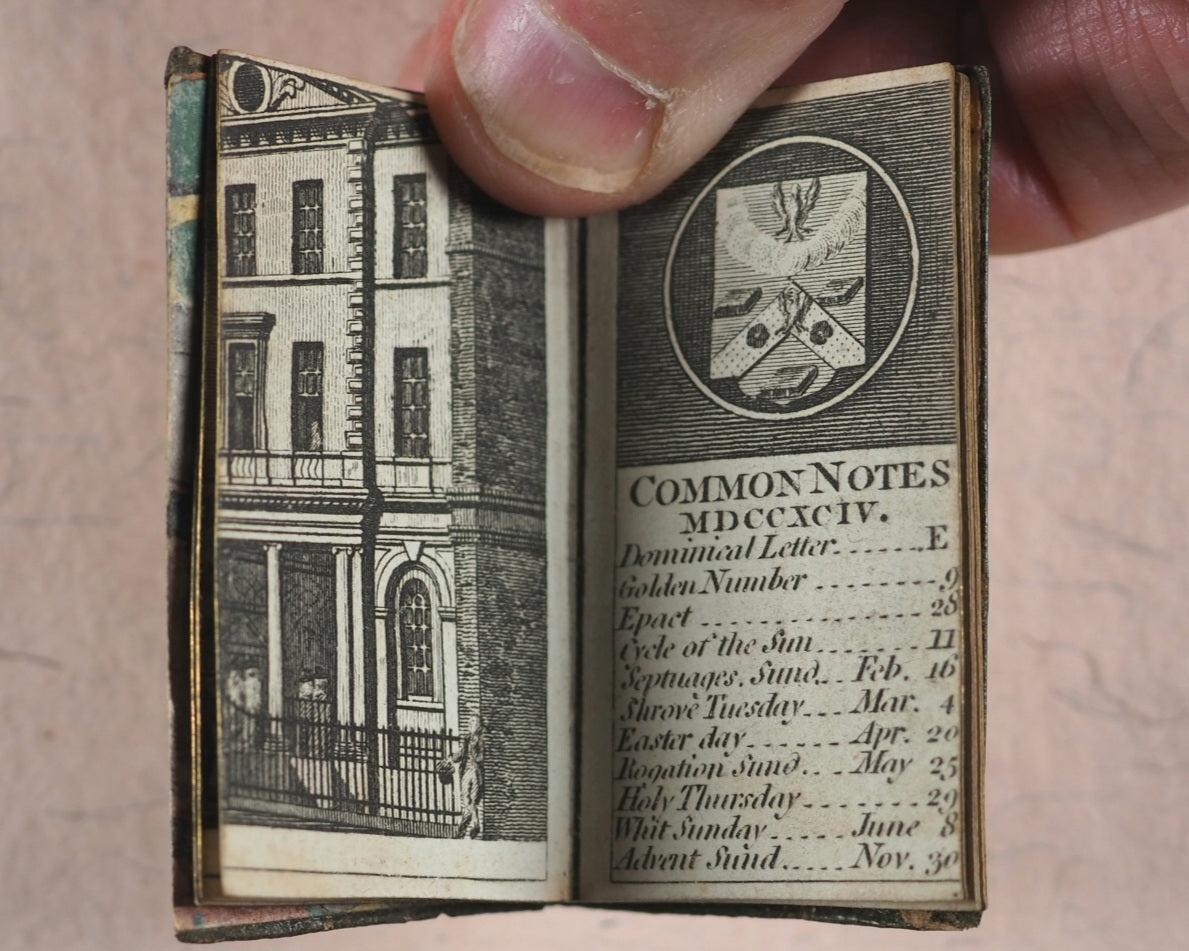 COMMON NOTES
MDCCXCIV.
Dominical Letter.......E
Golden Number .........9
Epact ............... 28
Cycle of the Sun....... 11
Septuages. Sund... Feb. 16
Shrove Tuesday... Mar. 4
Easter day...... Apr. 20
Rogation Sund... May 25
Holy Thursday........ 29
Whit Sunday..... June 8
Advent Sund..... Nov. 30